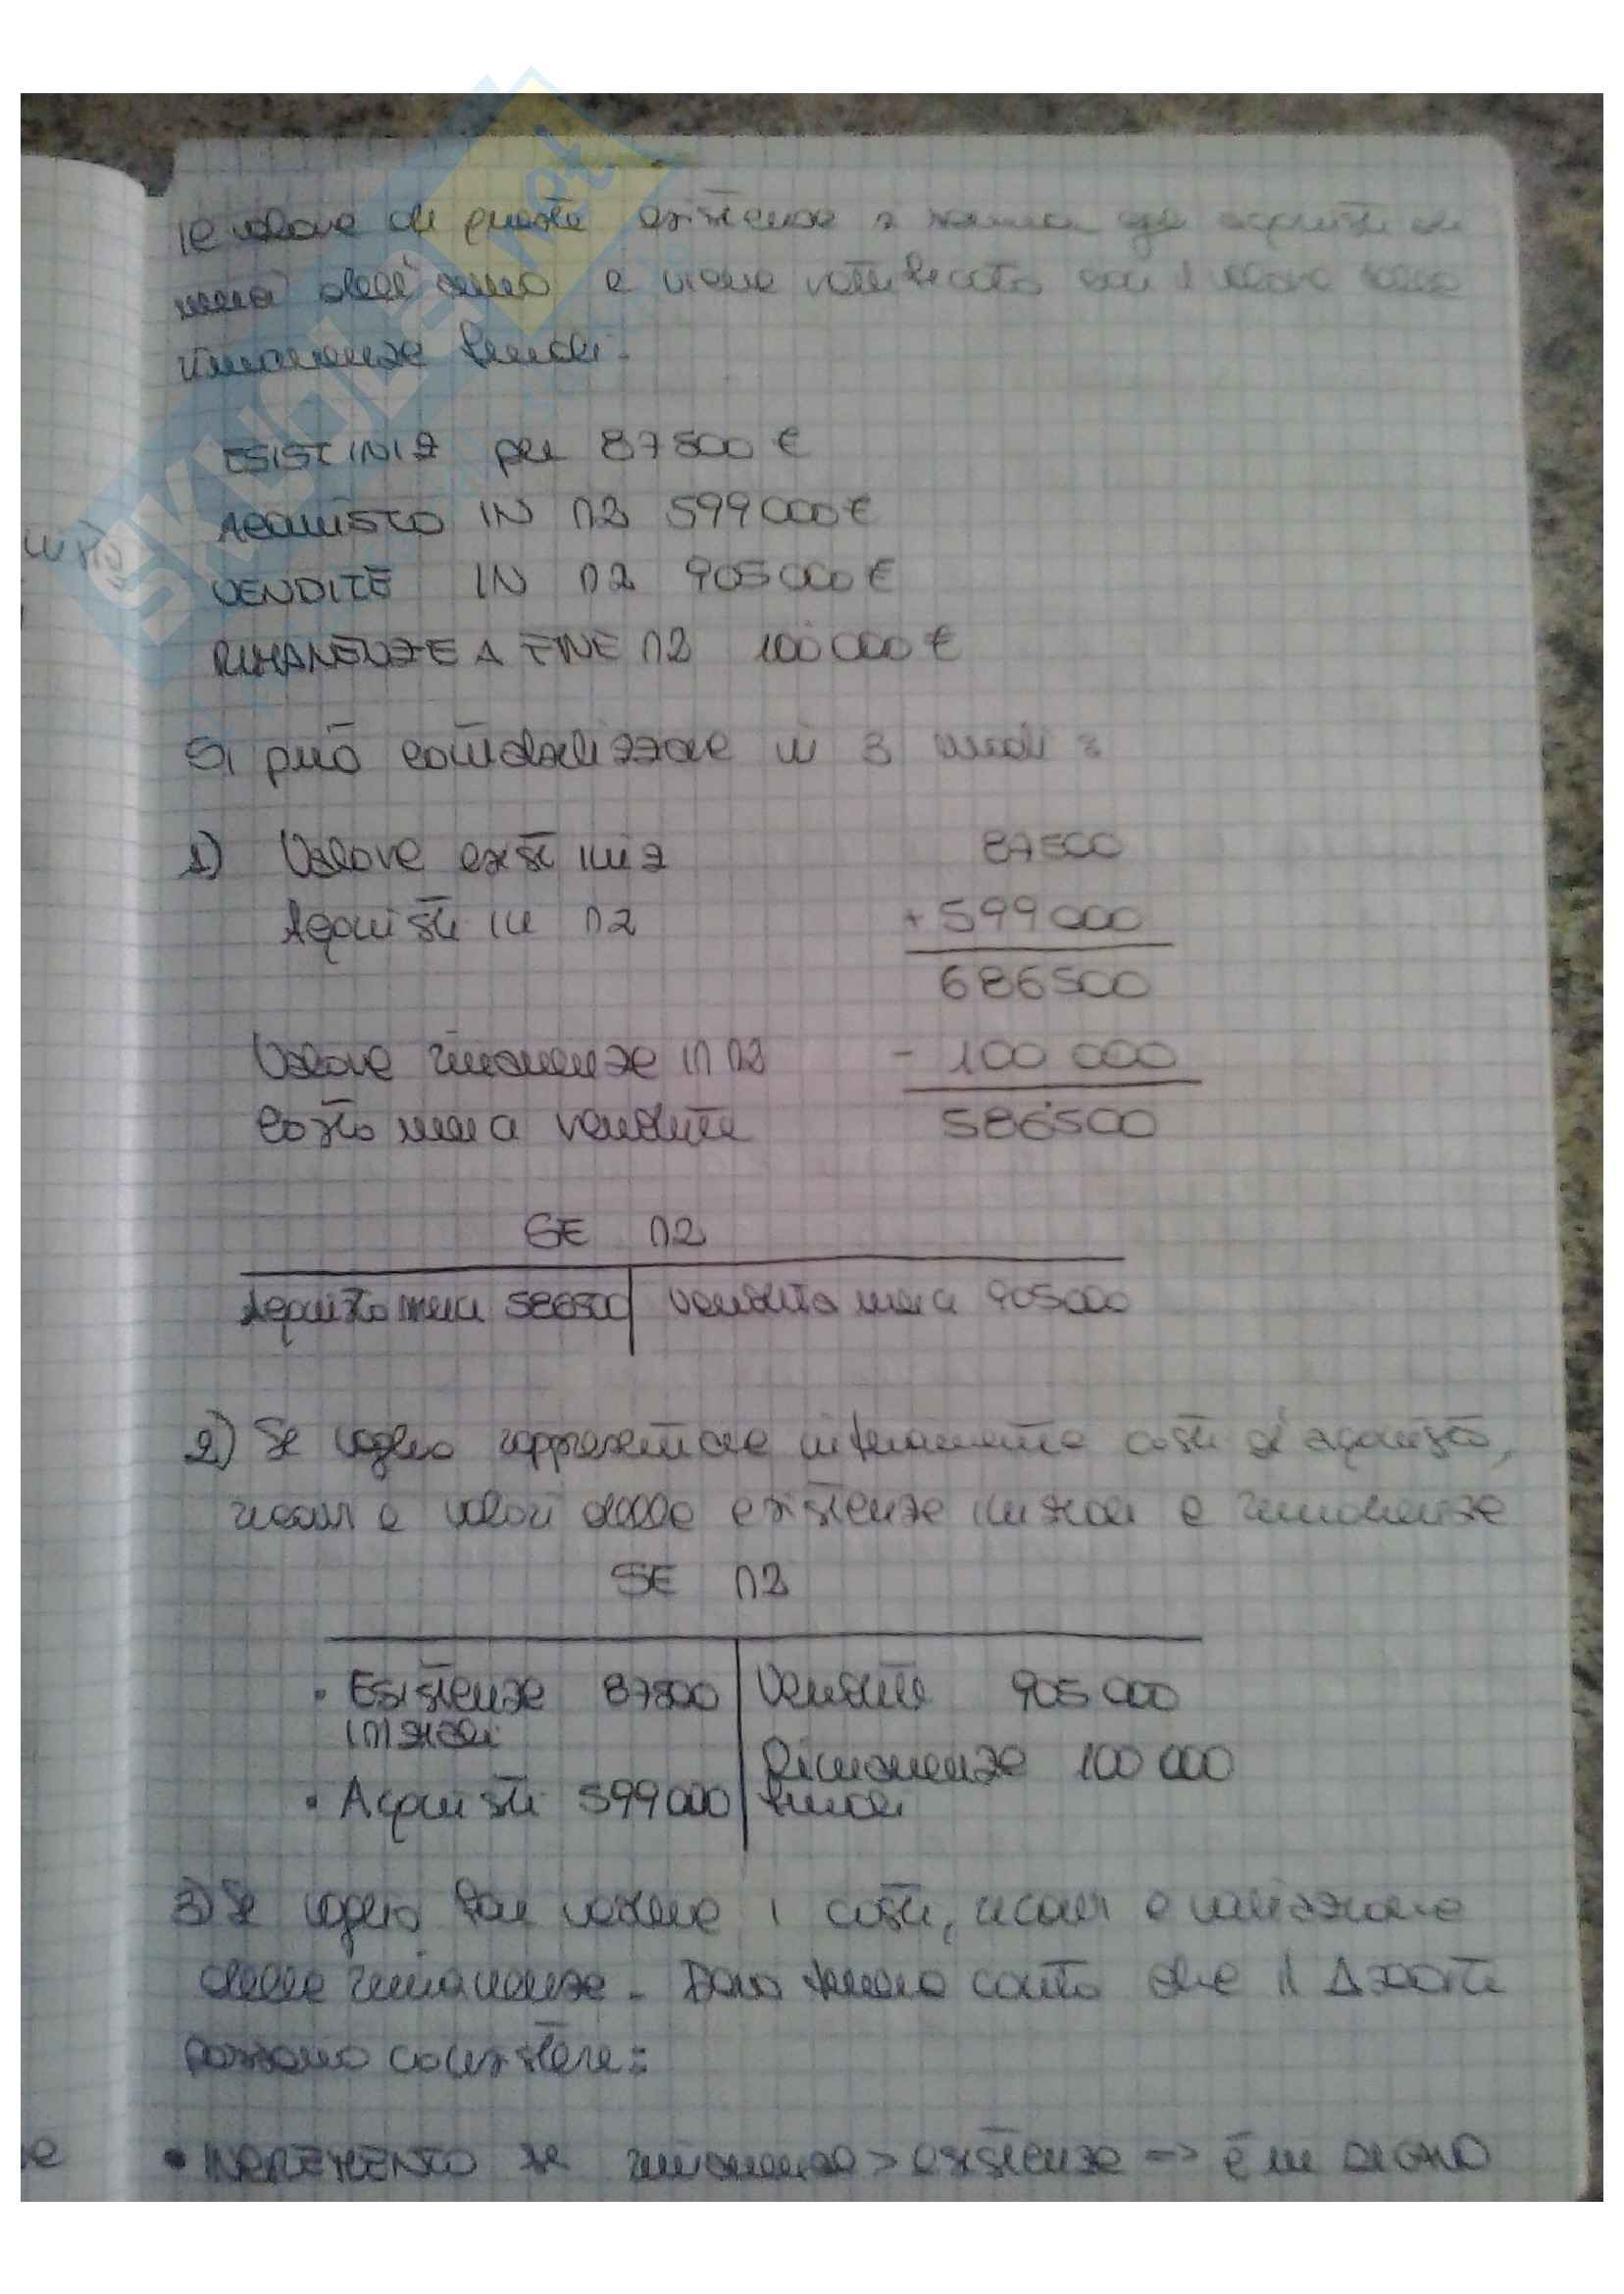 SKUOLA.net
il valore di queste esistenze si somma agli acquisti di
merci dell'anno e viene rettificato con il valore delle
rimanenze finali.
ESIST INIZ per 87500 €
ACQUISTO IN n2 599000 €
VENDITE IN n2 905000 €
RIMANENZE A FINE n2 100000 €
Si può contabilizzare in 3 modi:
1) Valore esist iniz 87500
Acquisti in n2 + 599000
686500
Valore rimanenze in n2 - 100 000
Costo merci vendute 586500
SE n2
Acquisto merci 586500 Vendita merci 905000
2) Se voglio rappresentare interamente costi d'acquisto,
ricavi e valori delle esistenze iniziali e rimanenze
SE n2
• Esistenze 87500 Vendite 905 000
iniziali
Rimanenze 100 000
• Acquisti 599000 finali
3) Se voglio far vedere i costi, ricavi e variazione
delle rimanenze. Devo tenere conto che
possono consistere:
• INCREMENTO se rimanenze > esistenze => è in